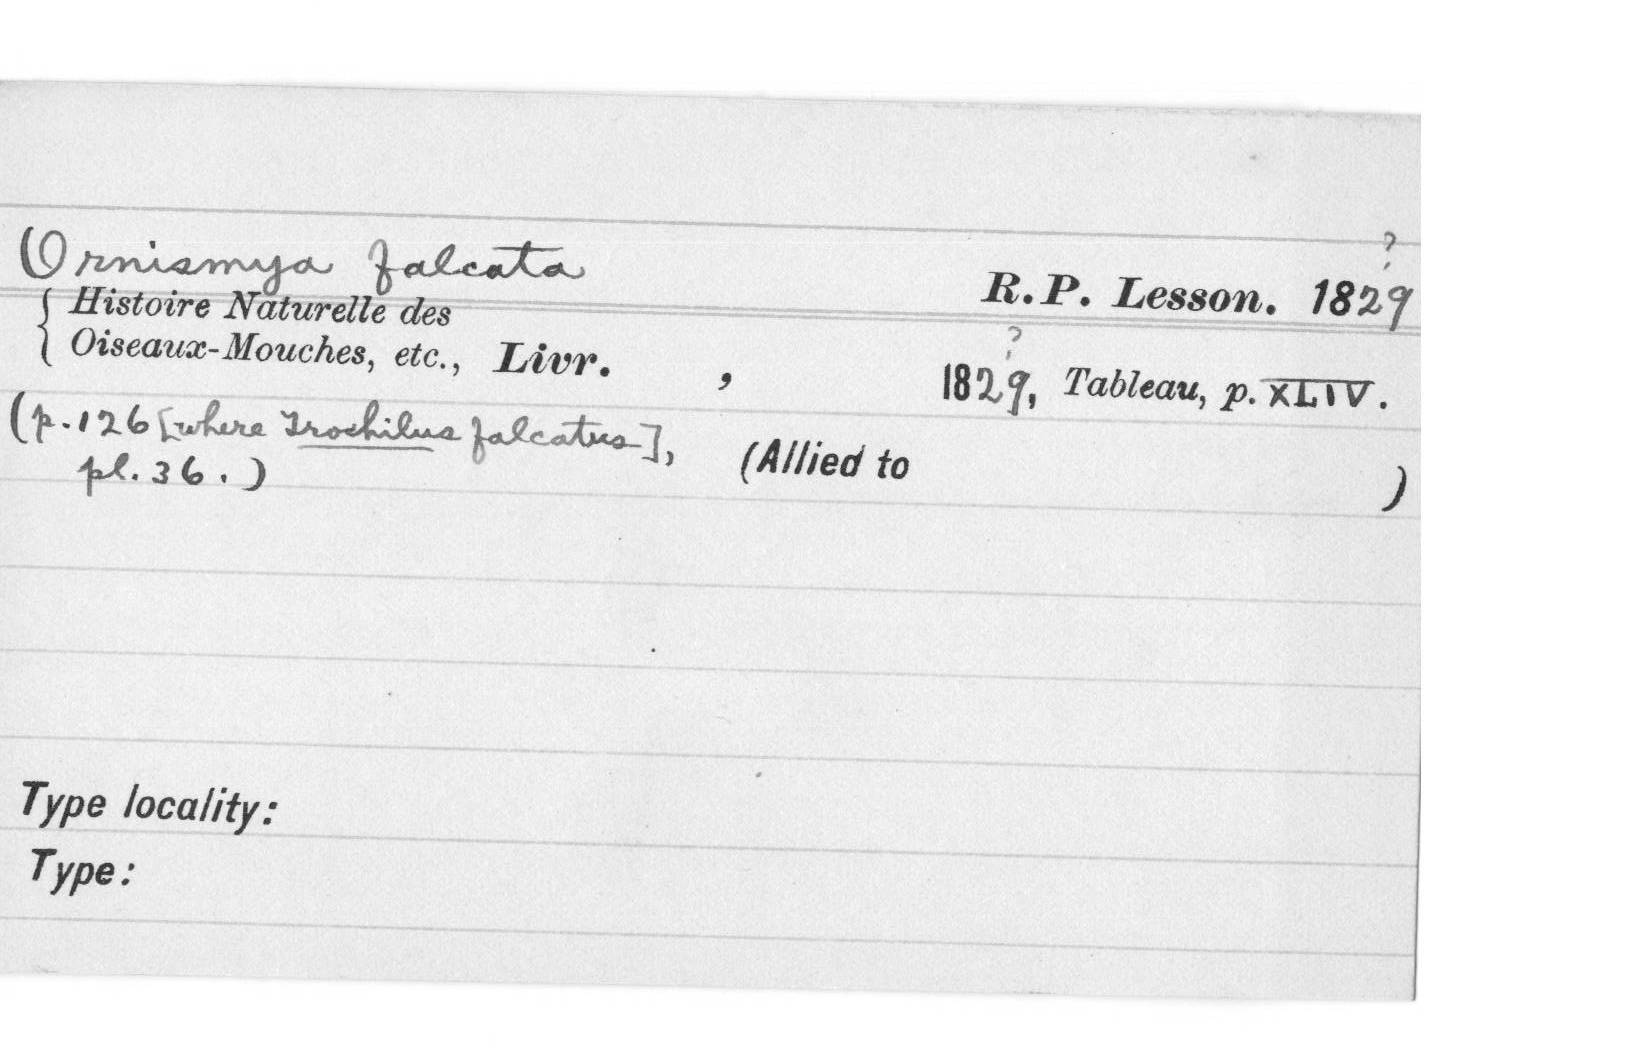 ?
Ornismya falcata
R.P. Lesson. 1829
{ Histoire Naturelle des
Oiseaux-Mouches, etc., Livr. , 1829, Tableau, p. XLIV.
?
(p.126 [where Trochilus falcatus],
pl.36.)
(Allied to )
Type locality:
Type: